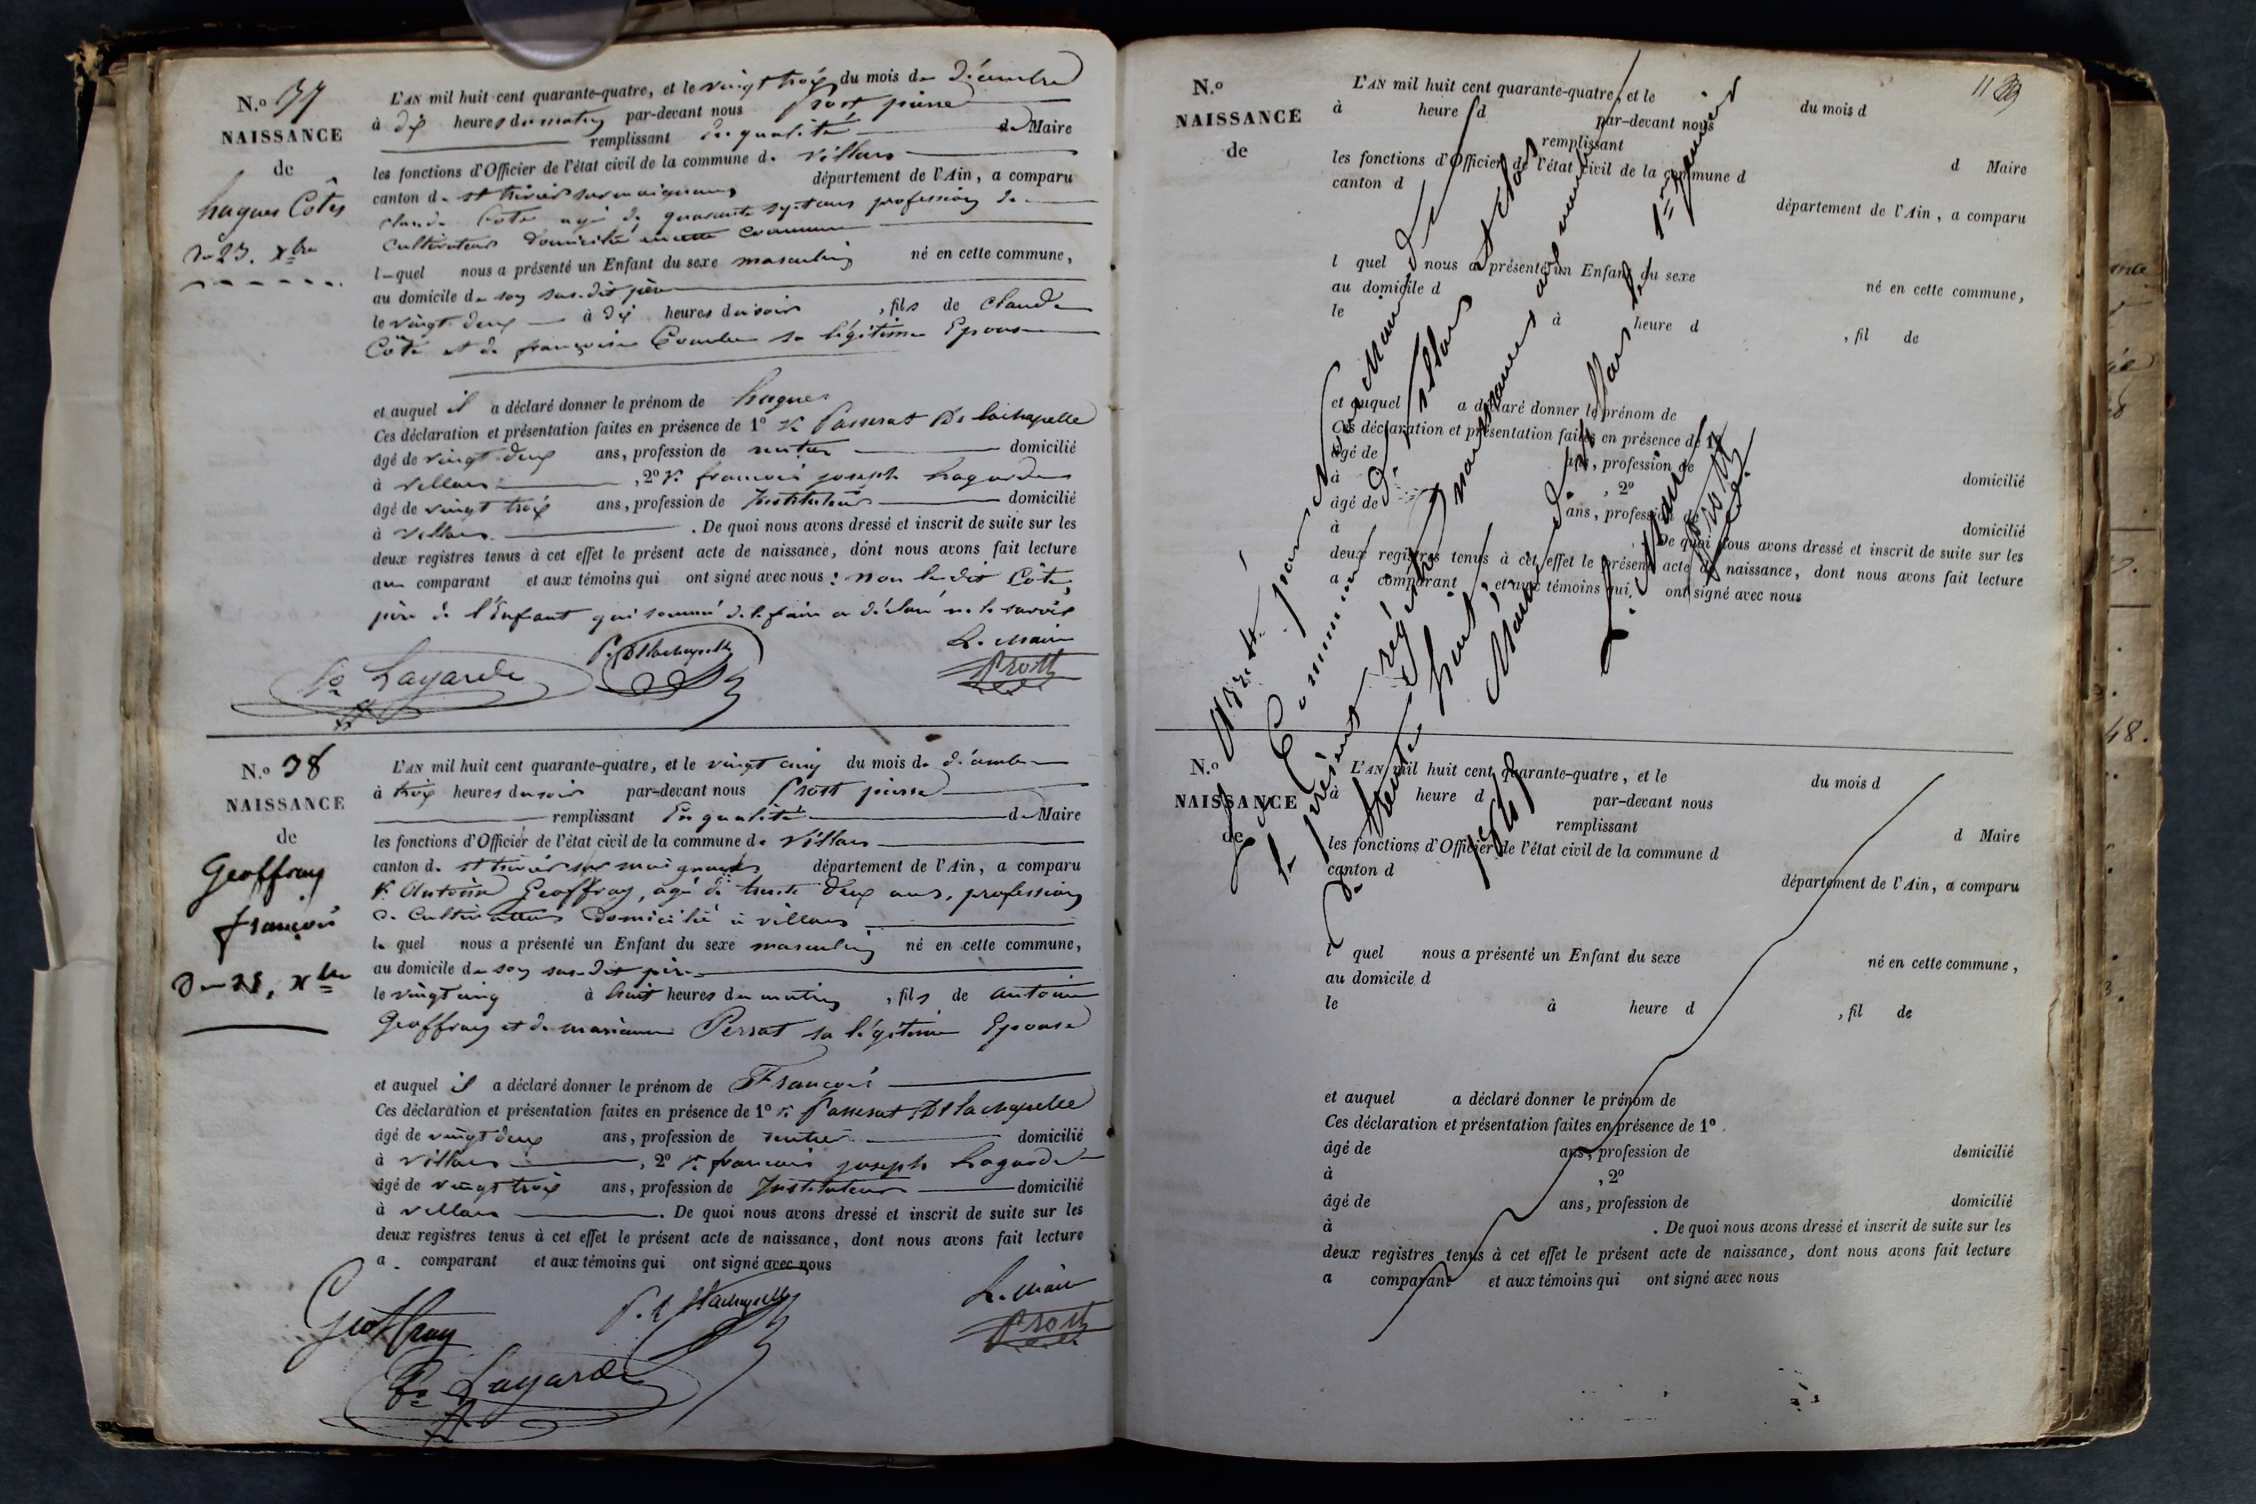 N.º 37
NAISSANCE
de
hugues Côte
Du 23. Xbre
L'AN mil huit cent quarante-quatre, et le vingt trois du mois de Décembre
à dix heures du matin par-devant nous Prost pierre
remplissant en qualité de Maire
les fonctions d'Officier de l'état civil de la commune de Villars
canton de st trivier sur moignans département de l'Ain, a comparu
Claude Cote agé de quarante sept ans profession de
Cultivateur Domicilié en cette Commune
lequel nous a présenté un Enfant du sexe masculin né en cette commune,
au domicile de son sus-dit père
le vingt-deux à dix heures du soir, fils de Claude
Côte et de françoise Combe sa légitime Epouse
et auquel il a déclaré donner le prénom de hugues
Ces déclaration et présentation faites en présence de 1º Passerat De lachapelle
âgé de vingt-deux ans, profession de rentier domicilié
à villars, 2º françois joseph Lagarde
âgé de vingt trois ans, profession de Instituteur domicilié
à villars. De quoi nous avons dressé et inscrit de suite sur les
deux registres tenus à cet effet le présent acte de naissance, dont nous avons fait lecture
au comparant et aux témoins qui ont signé avec nous: non le dit Côte,
père de l'Enfant qui sommé de le faire a déclaré ne le savoir
Lagarde
P. Delachapelle
Le Maire
Prost
N.º 38
NAISSANCE
de
Geoffray
françois
Du 25, Xbre
L'AN mil huit cent quarante-quatre, et le vingt cinq du mois de décembre
à trois heures du soir par-devant nous Prost pierre
remplissant En qualité de Maire
les fonctions d'Officier de l'état civil de la commune de Villars
canton de st trivier sur moignans département de l'Ain, a comparu
Antoine Geoffray, âgé de trente deux ans, profession
de Cultivateur Domicilié à villars
le quel nous a présenté un Enfant du sexe masculin né en cette commune,
au domicile de son sus-dit père
le vingt cinq à huit heures du matin, fils de antoine
Geoffray et de marianne Perrat sa légitime Epouse
et auquel il a déclaré donner le prénom de François
Ces déclaration et présentation faites en présence de 1º Passerat De lachapelle
âgé de vingt deux ans, profession de rentier domicilié
à villars, 2º françois joseph Lagarde
âgé de vingt trois ans, profession de Instituteur domicilié
à villars. De quoi nous avons dressé et inscrit de suite sur les
deux registres tenus à cet effet le présent acte de naissance, dont nous avons fait lecture
a comparant et aux témoins qui ont signé avec nous
Geoffray
P. Delachapelle
Le Maire
Prost
Lagarde
N.º
NAISSANCE
de
L'AN mil huit cent quarante-quatre, et le du mois d
à heure d par-devant nous
remplissant d Maire
les fonctions d'Officier de l'état civil de la commune d
canton d département de l'Ain, a comparu
l quel nous a présenté un Enfant du sexe né en cette commune,
au domicile d
le à heure d, fil de
et auquel a déclaré donner le prénom de
Ces déclaration et présentation faites en présence de 1º
âgé de ans, profession de domicilié
à, 2º
âgé de ans, profession de domicilié
à. De quoi nous avons dressé et inscrit de suite sur les
deux registres tenus à cet effet le présent acte de naissance, dont nous avons fait lecture
a comparant et aux témoins qui ont signé avec nous
Clos Arrêté par Nous Maire de
la Commune de Villars
le présent régistre
de trente huit
Mairie de Villars le 1er Janvier
1845
Le Maire
Prost
N.º
NAISSANCE
de
L'AN mil huit cent quarante-quatre, et le du mois d
à heure d par-devant nous
remplissant d Maire
les fonctions d'Officier de l'état civil de la commune d
canton d département de l'Ain, a comparu
l quel nous a présenté un Enfant du sexe né en cette commune,
au domicile d
le à heure d, fil de
et auquel a déclaré donner le prénom de
Ces déclaration et présentation faites en présence de 1º
âgé de ans, profession de domicilié
à, 2º
âgé de ans, profession de domicilié
à. De quoi nous avons dressé et inscrit de suite sur les
deux registres tenus à cet effet le présent acte de naissance, dont nous avons fait lecture
a comparant et aux témoins qui ont signé avec nous